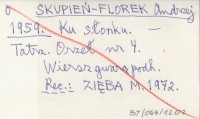 SKUPIEŃ-FLOREK Andrzej
1959. Ku słonku. —
Tatra. Orzeł nr 4.
Wiersz gwarą podh.
Rec.: ZIĘBA M. 1972.
BT/064/1202